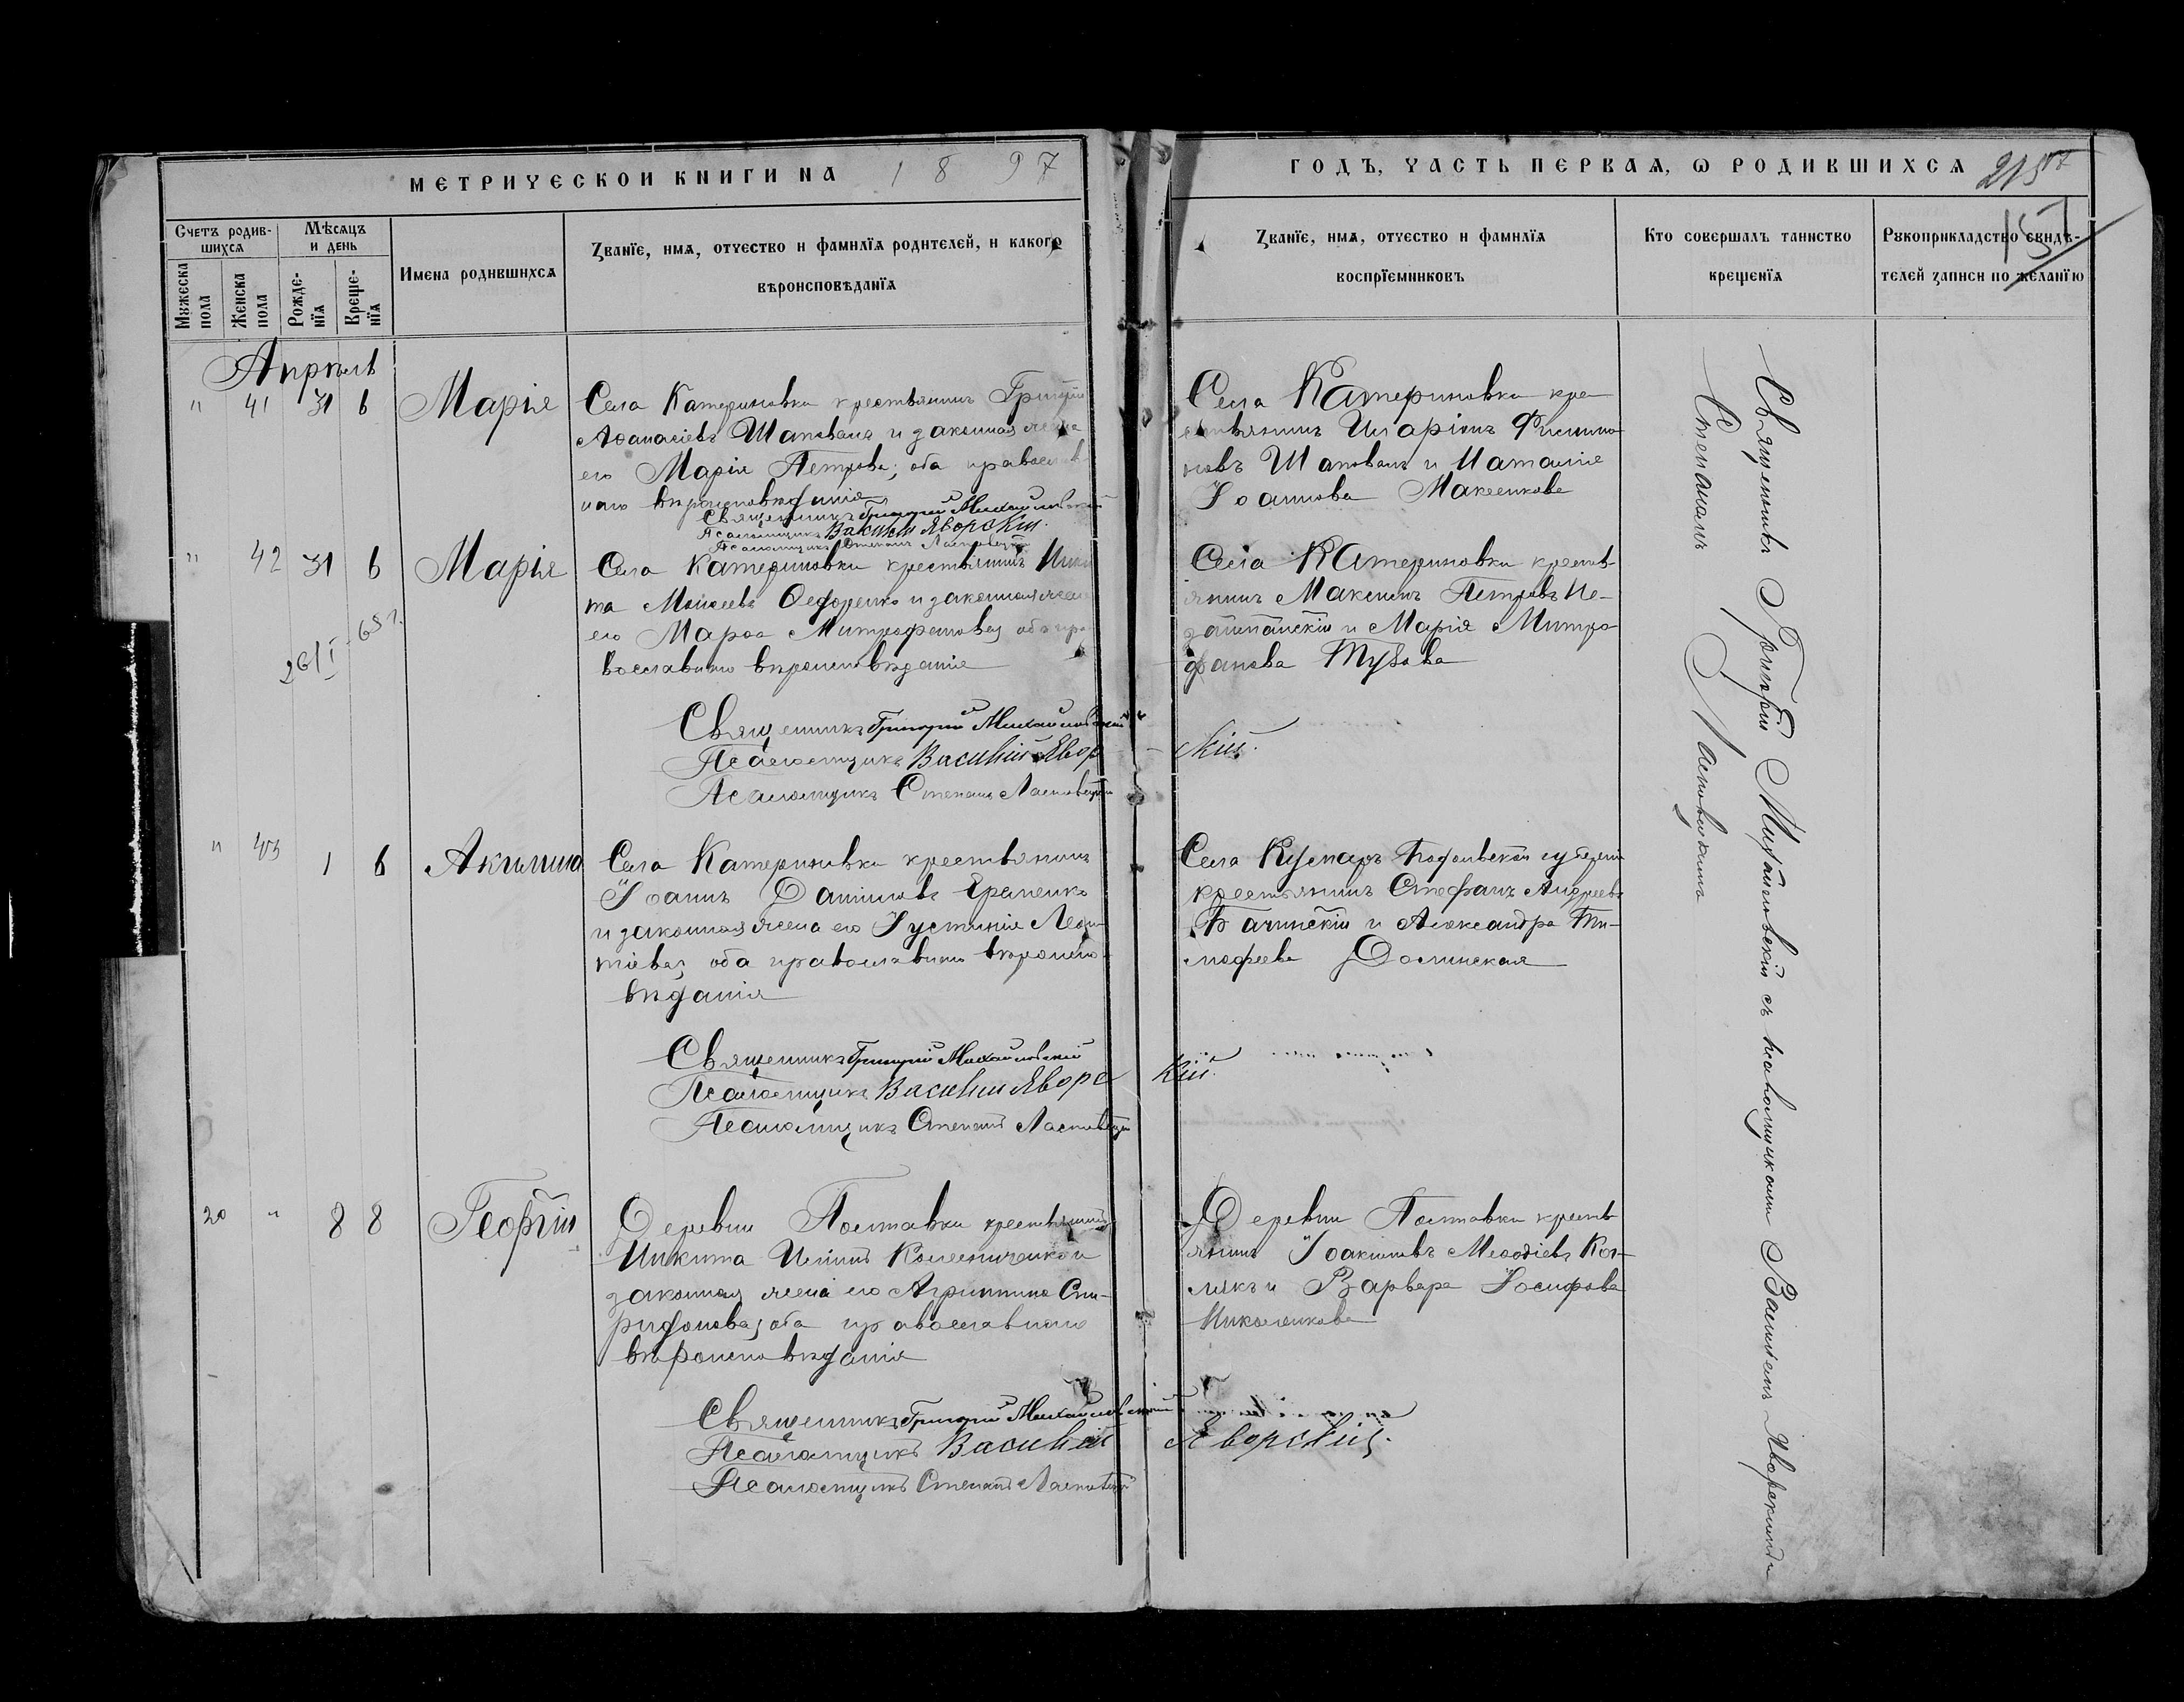 МЕТРИЧЕСКОЙ КНИГИ НА 1897
ГОДЪ, ЧАСТЬ ПЕРВАЯ, Ѡ РОДИВШИХСЯ 215
157
Счетъ родив-
шихся
Мѣсяцъ
и день
Мужеска
пола
Женска
пола
Рожде-
нїя
Креще-
нїя
Имена родившихся
Званїе, имя, отчество и фамилїя родителей, и какого
вѣроисповѣданїя
Званїе, имя, отчество и фамилїя
воспрїемниковъ
Кто совершалъ таинство
крещенїя
Рукоприкладство свидѣ-
телей записи по желанїю
Апрѣль
" 41 31 6 Марія
Села Катериновки крестьянинъ Григорій
Аѳанасіевъ Шаповалъ и законная жена
его Марія Петрова; оба православ-
наго вѣроисповѣданія
Священникъ Григорій Михайловскій
Псаломщикъ Василій Яворскій.
Псаломщикъ Степанъ Ластовецкій
Села Катериновки кре-
стьянинъ Иларіонъ Филимо-
новъ Шаповалъ и Наталія
Іоаннова Макеенкова
" 42 31 6 Марія
Села Катериновки крестьянинъ Ники-
та Моисеевъ Ѳедоренко и законная жена
его Марѳа Митрофанова, оба пра-
вославнаго вѣроисповѣданія
26/I-65 г.
Священникъ Григорій Михайловскій
Псаломщикъ Василій Яворскій.
Псаломщикъ Степанъ Ластовецкій
Села Катериновки кресть-
янинъ Максимъ Петровъ
и Марія Митро-
фанова
" 43 1 6 Акилина
Села Катериновки крестьянинъ
Іоаннъ Даніиловъ Еременко
и законная жена его Іустинія Леон-
тіева, оба православнаго вѣроиспо-
вѣданія
Священникъ Григорій Михайловскій
Псаломщикъ Василій Яворскій.
Псаломщикъ Степанъ Ластовецкій
Села Подольской губерніи
крестьянинъ Стефанъ Андреевъ
Бачинскій и Александра Ти-
мофеева Долинская
20 " 8 8 Георгій
Деревни Поставки крестьянинъ
Никита Иліинъ Колесниченко и
законная жена его Агриппина Спи-
ридонова, оба православнаго
вѣроисповѣданія
Священникъ Григорій Михайловскій
Псаломщикъ Василій Яворскій.
Псаломщикъ Степанъ Ластовецкій
Деревни Поставки кресть-
янинъ Іоакимъ Меѳодіевъ
и Варвара Іосифова
Николенкова
Священникъ Григорій Михайловскій съ псаломщиками Василіемъ Яворскимъ и
Степаномъ Ластовецкимъ